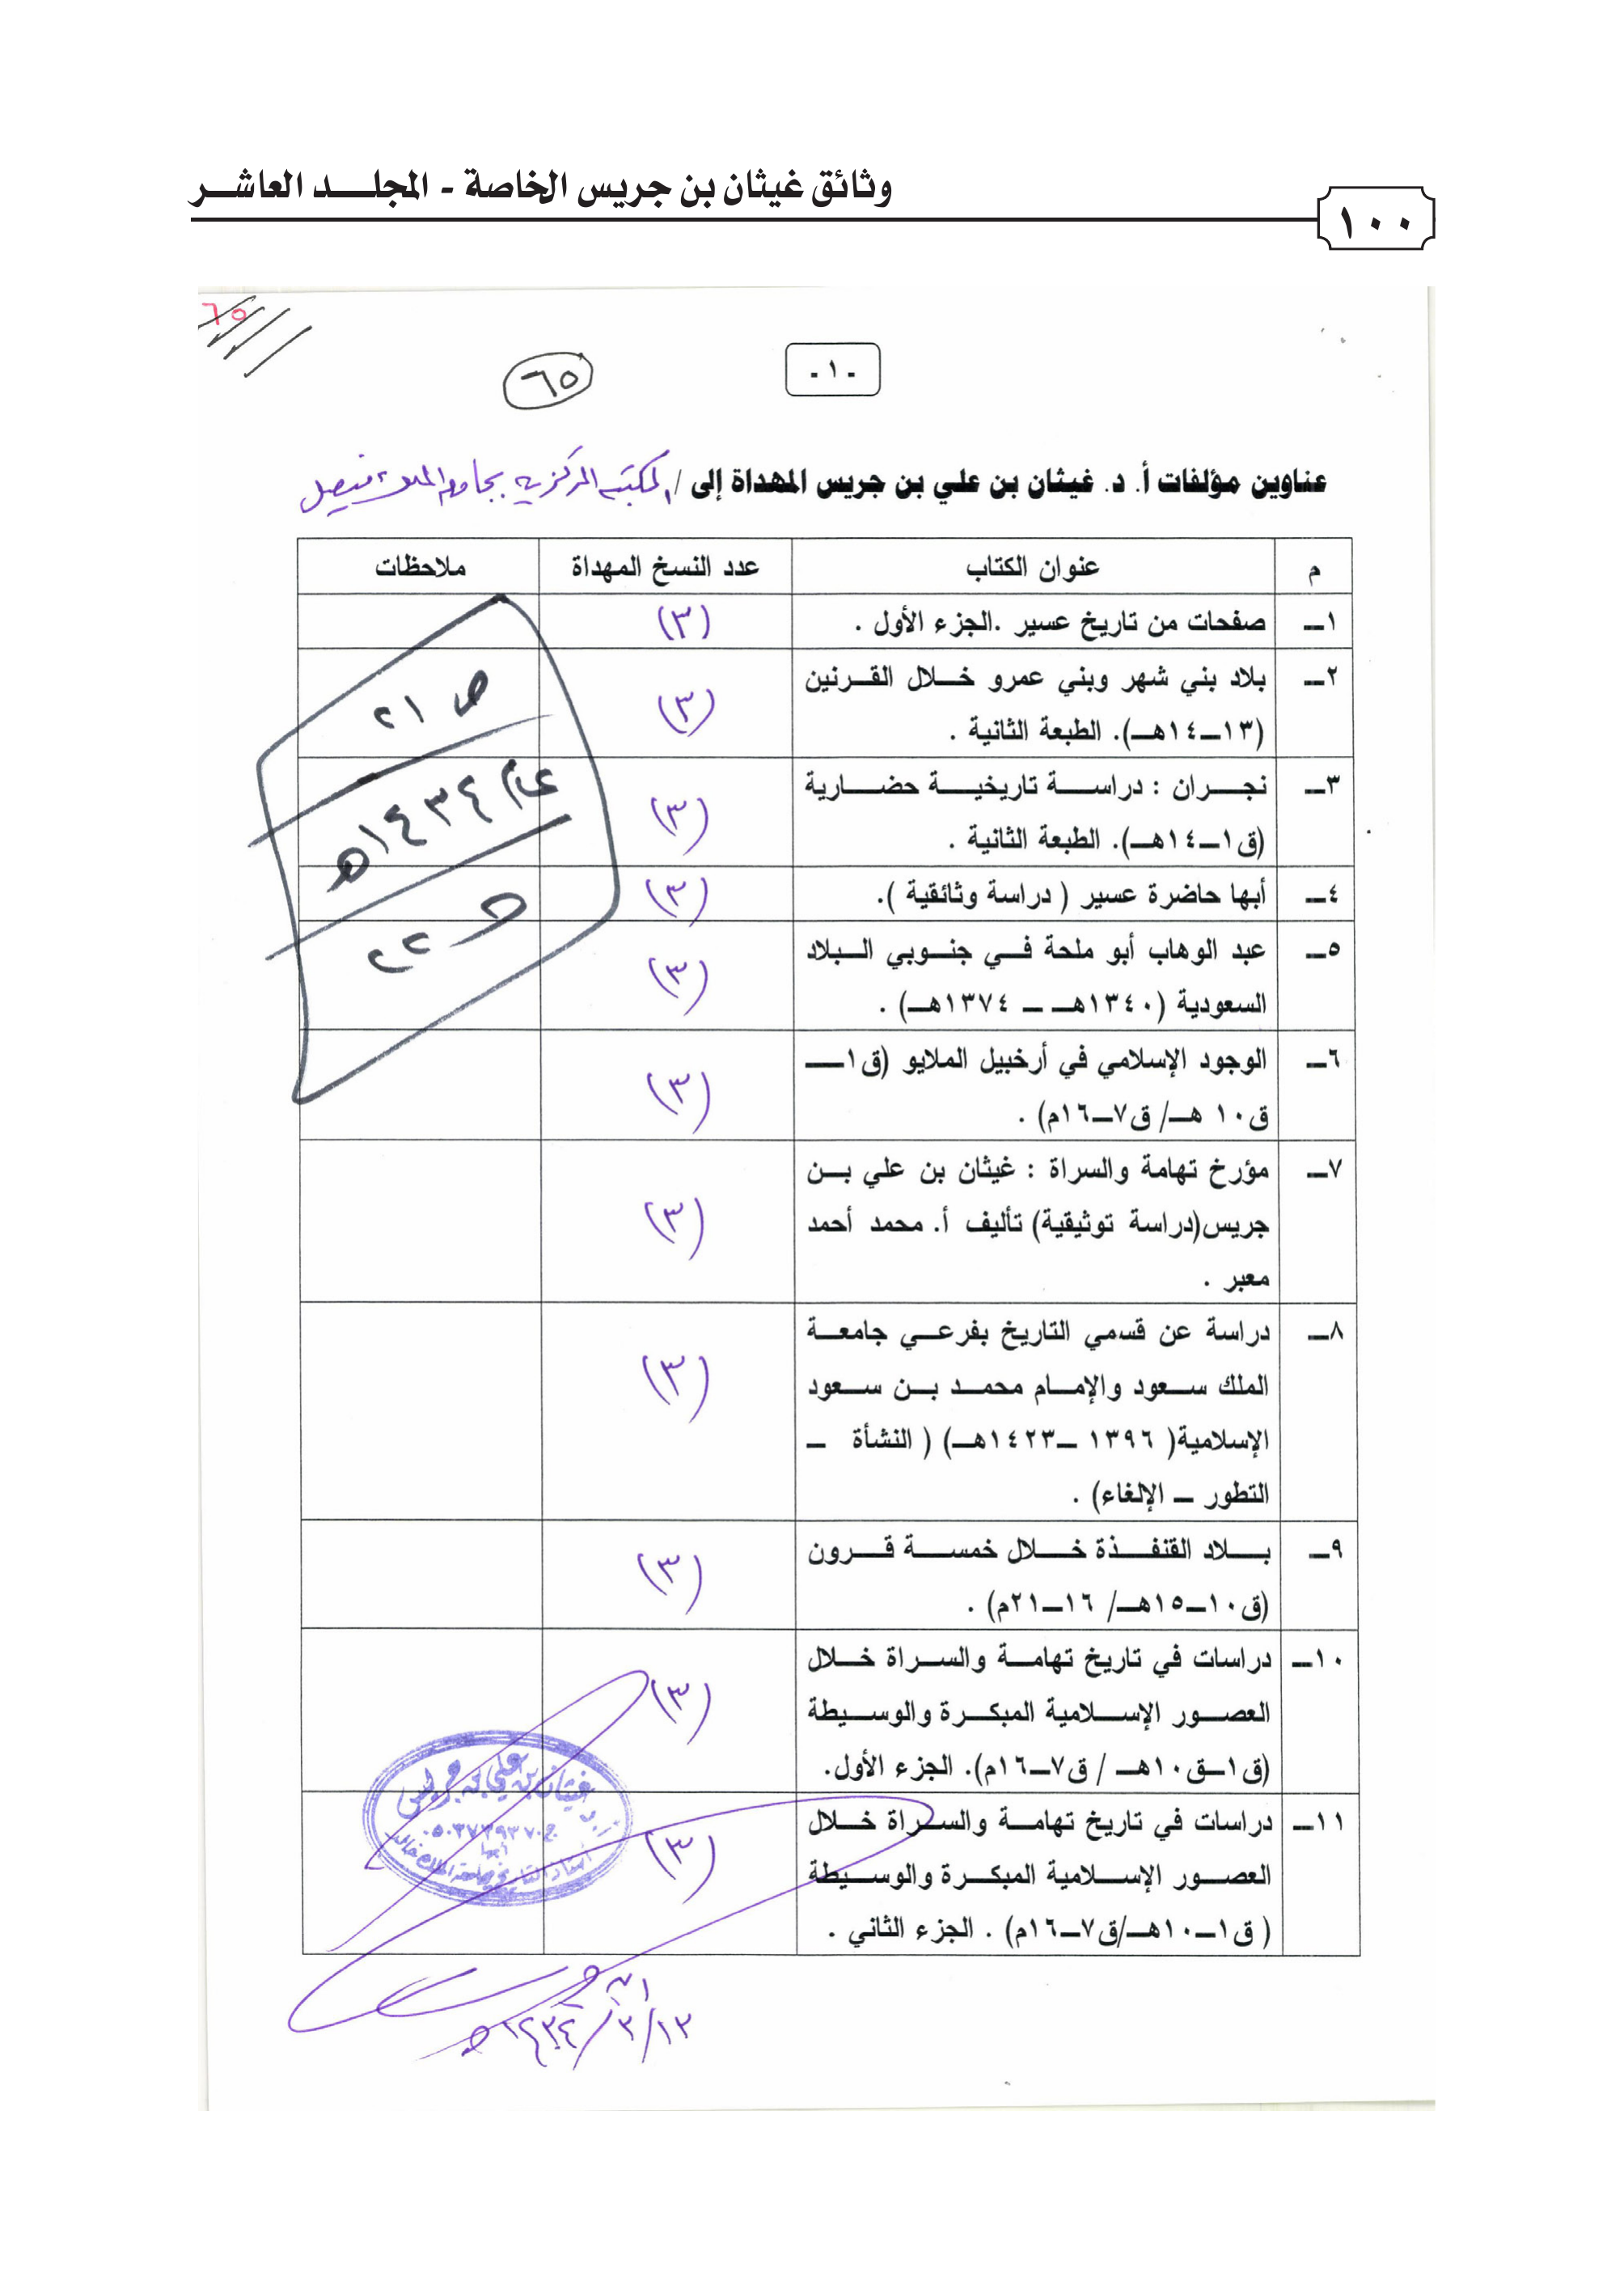 وثائق غيثان بن جريس الخاصة - المجلـــد العاشـــر
١٠٠
٦٥
٦٥
- ١ -
عناوين مؤلفات أ. د. غيثان بن علي بن جريس المهداة إلى / المكتبة المركزية بجامعة الملك فيصل
م عنوان الكتاب عدد النسخ المهداة ملاحظات
١ــ صفحات من تاريخ عسير .الجزء الأول . (٣)
٢ــ بلاد بني شهر وبني عمرو خــلال القــرنين
(١٣ــ١٤هــ). الطبعة الثانية . (٣)
٣ــ نجــران : دراســة تاريخيــة حضــارية
(ق١ــ١٤هــ). الطبعة الثانية . (٣)
٤ــ أبها حاضرة عسير ( دراسة وثائقية ). (٣)
٥ــ عبد الوهاب أبو ملحة فــي جنــوبي الــبلاد
السعودية (١٣٤٠هــ ــ ١٣٧٤هــ) . (٣)
٦ــ الوجود الإسلامي في أرخبيل الملايو (ق١ــ
ق١٠ هــ/ ق٧ــ١٦م) . (٣)
٧ــ مؤرخ تهامة والسراة : غيثان بن علي بــن
جريس(دراسة توثيقية) تأليف أ. محمد أحمد
معبر . (٣)
٨ــ دراسة عن قسمي التاريخ بفرعــي جامعــة
الملك ســعود والإمــام محمــد بــن ســعود
الإسلامية( ١٣٩٦ ــ١٤٢٣هــ) ( النشأة ــ
التطور ــ الإلغاء) . (٣)
٩ــ بــلاد القنفــذة خــلال خمســة قــرون
(ق١٠ــ١٥هــ/ ١٦ــ٢١م) . (٣)
١٠ــ دراسات في تاريخ تهامــة والســراة خــلال
العصــور الإســلامية المبكــرة والوســيطة
(ق١ــق١٠هــ / ق٧ــ١٦م). الجزء الأول. (٣)
١١ــ دراسات في تاريخ تهامــة والســراة خــلال
العصــور الإســلامية المبكــرة والوســيطة
( ق١ــ١٠هــ/ق٧ــ١٦م) . الجزء الثاني . (٣)
ص ٢١
عام ١٤٣٤هـ
حـ ٢٢
أ.د غيثان بن علي بن جريس
أبها
أستاذ التاريخ بجامعة الملك خالد
١٣/٣/١٤٣٤هـ